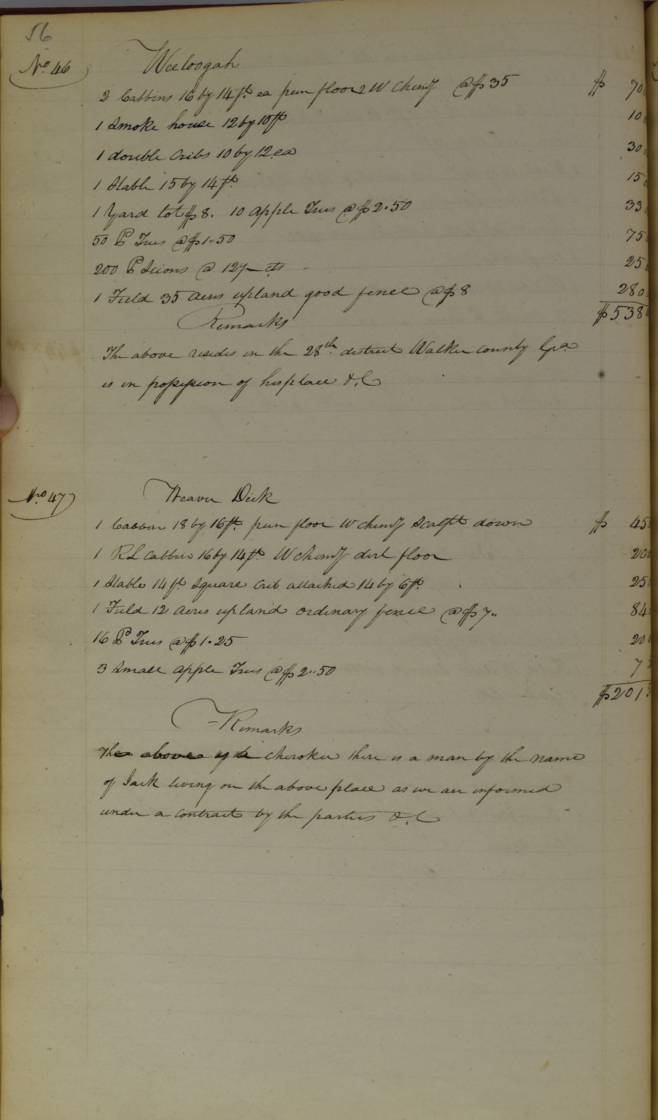 56
No. 46
Weeloogah
2 Cabbins 16 by 14 ft. ea pun floor 2 W Chimy @ $35 $ 70
1 Smoke house 12 by 10 ft 10
1 double Cribs 10 by 12 ea 30
1 Stable 15 by 14 ft. 15
1 Yard lot $8. 10 Apple Trees @ $2.50 33
50 P Trees @ $1.50 75
200 P Scions @ 12½ cts 25
1 Field 35 acres upland good fence @ $8 280
$538
Remarks
The above resides in the 28th district Walker County Ga
is in possession of his place &C
No. 47
Weaver Dick
1 Cabbin 18 by 16 ft. pun floor W chimy Scalpt down $ 45
1 RL Cabbin 16 by 14 ft W chimy dirt floor 20
1 Stable 14 ft Square Crib attached 14 by 6 ft. 25
1 Field 12 acres upland ordinary fence @ $7 84
16 P Trees @ $1.25 20
3 Small Apple Trees @ $2.50 7
$201
Remarks
The above is a cherokee there is a man by the name
of Jack living on the above place as we are informed
under a contract by the parties &C